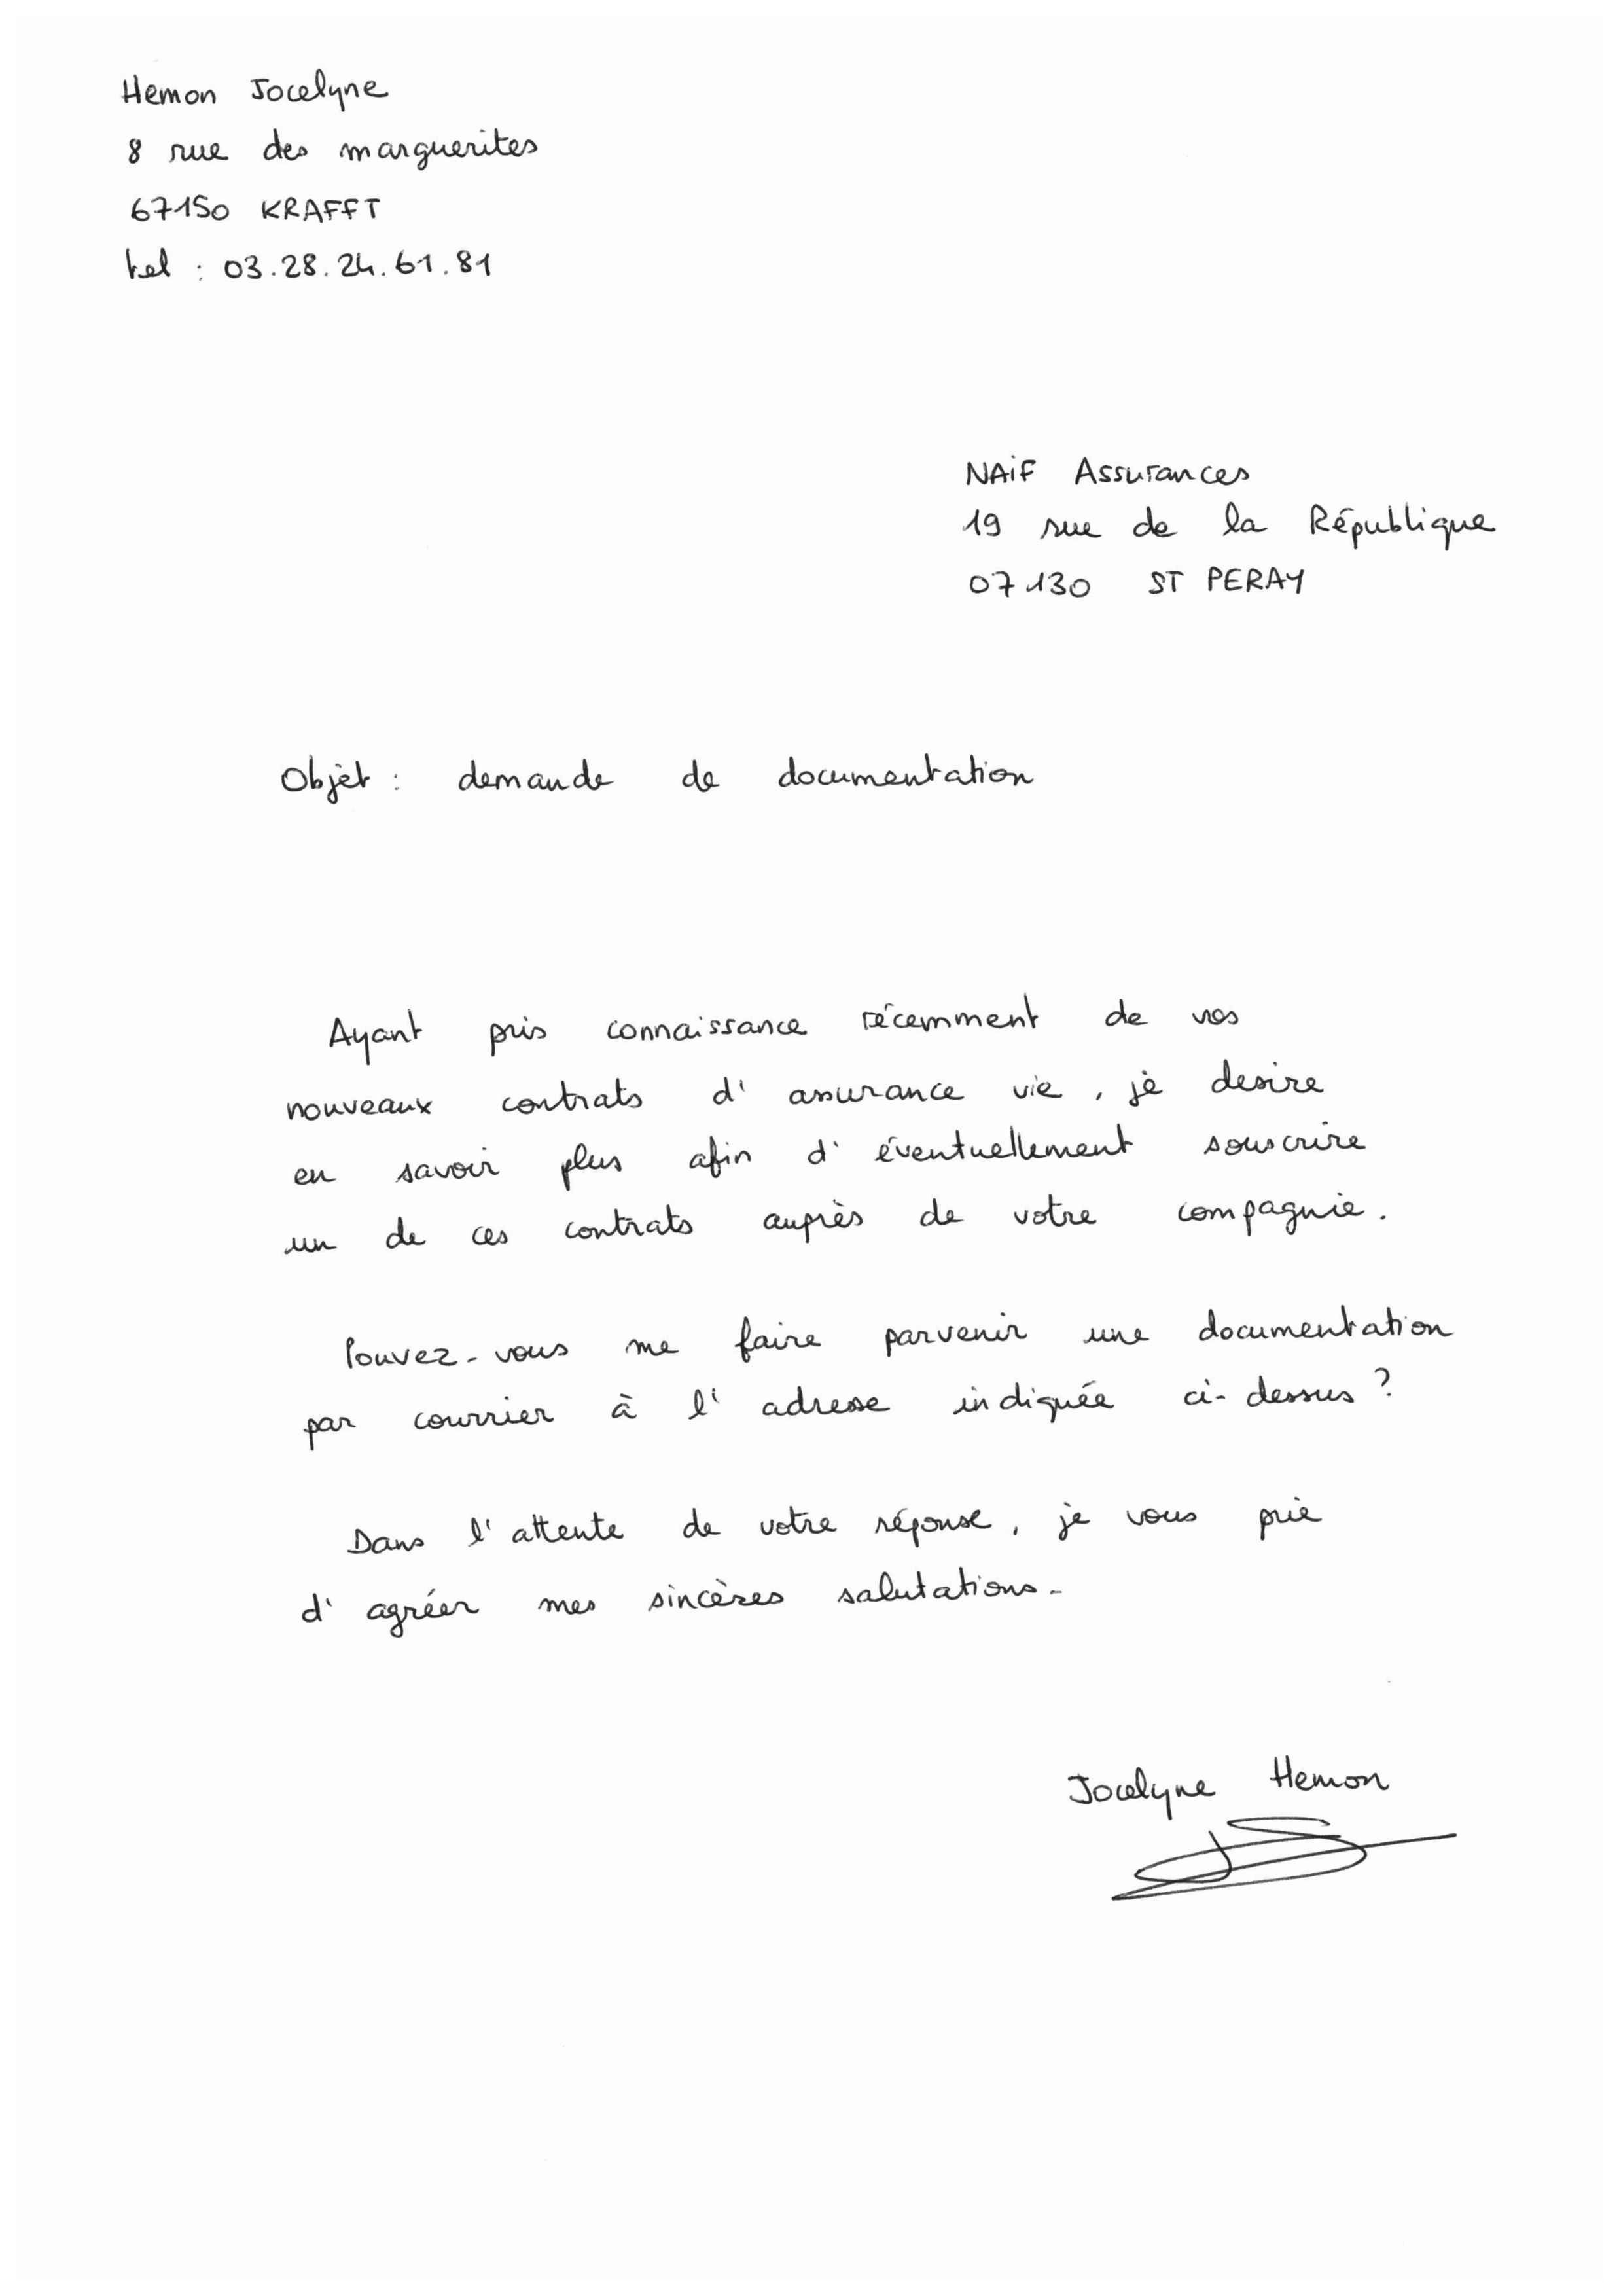 Hemon Jocelyne
8 rue des marguerites
67150 KRAFFT
tel : 03.28.24.61.81
NAiF Assurances
19 rue de la République
07130 ST PERAY
Objet : demande de documentation
Ayant pris connaissance récemment de vos
nouveaux contrats d'assurance vie, je desire
en savoir plus afin d'éventuellement souscrire
un de ces contrats auprès de votre compagnie.
Pouvez-vous me faire parvenir une documentation
par courrier à l'adresse indiquée ci-dessus ?
Dans l'attente de votre réponse, je vous prie
d'agréer mes sincères salutations.
Jocelyne Hemon